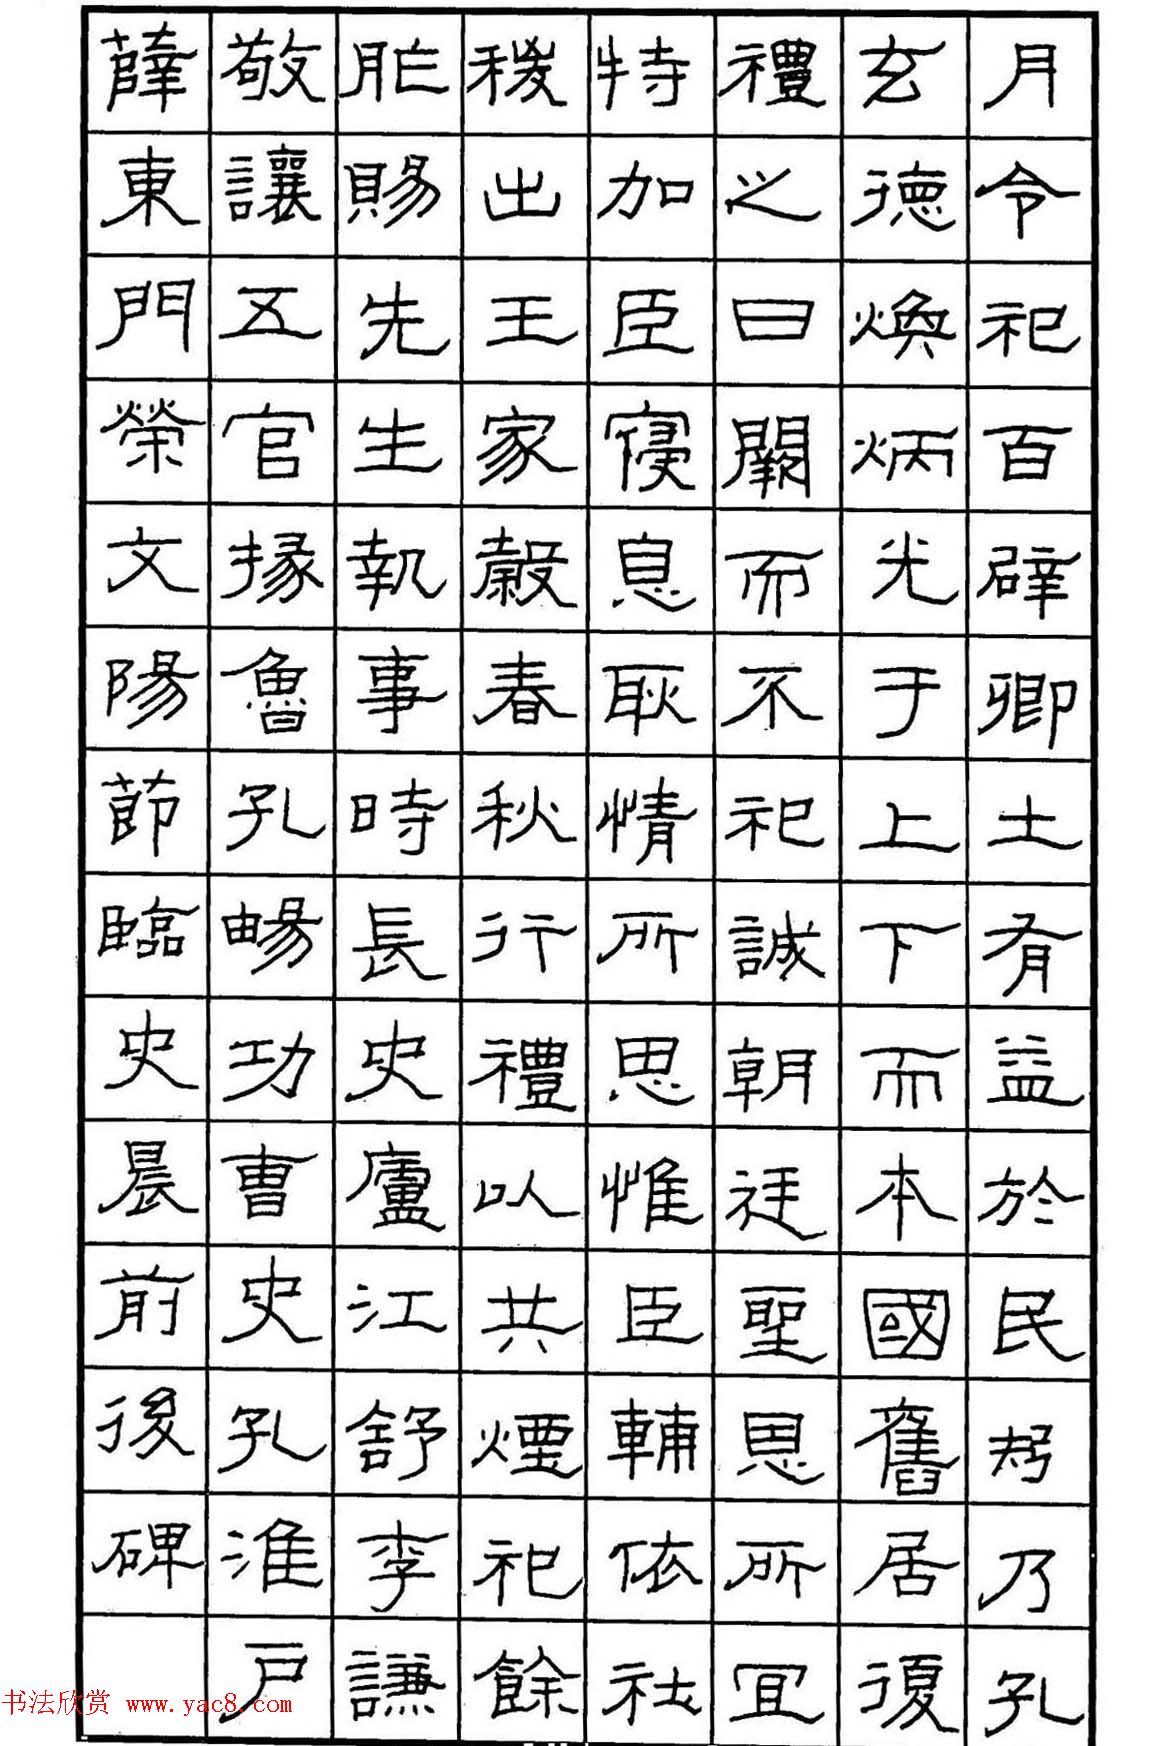 月令祀百辟卿士有益於民矧乃孔
玄德煥炳光于上下而本國舊居復
禮之日闕而不祀誠朝廷聖恩所宜
特加臣寑息耿情所思惟臣輔依社
稷出王家榖春秋行禮以共煙祀餘
胙賜先生執事時長史廬江舒李謙
敬讓五官掾魯孔暢功曹史孔淮户
薛東門榮文陽節臨史晨前後碑
书法欣赏 www.yac8.com